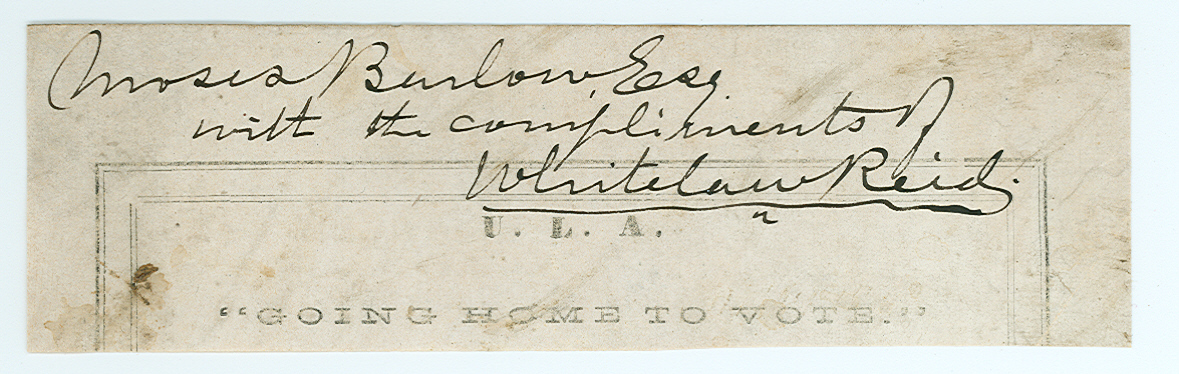 Moses Barlow, Esq.
with the compliments of
Whitelaw Reid.
U. L. A.
“GOING HOME TO VOTE.”